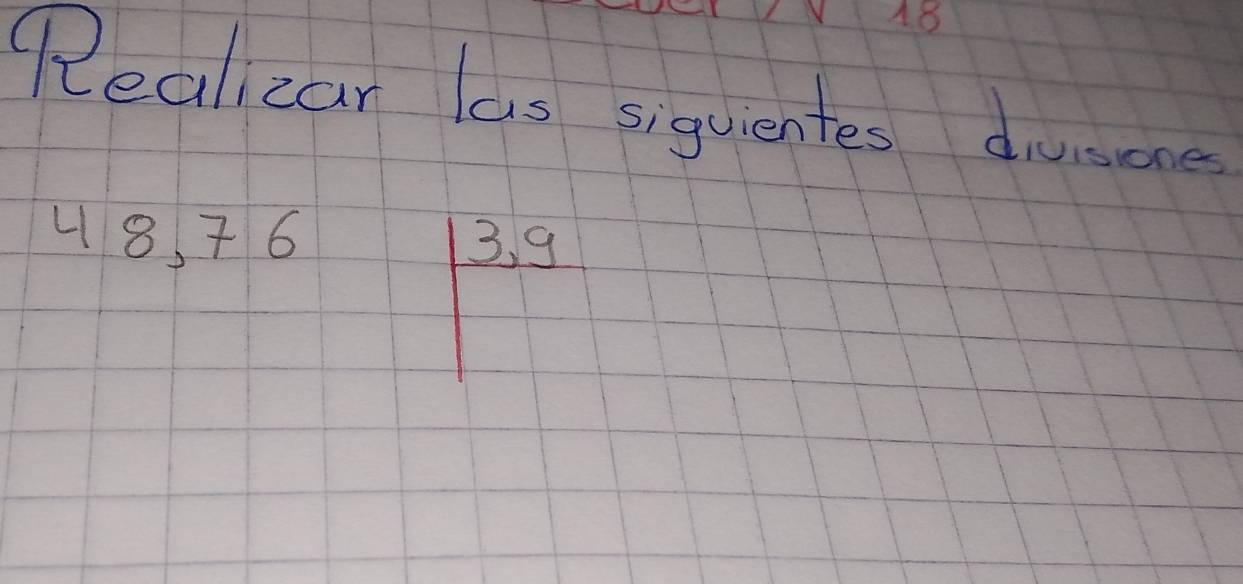 18
Realizar las siguientes divisiones
48,76 3,9